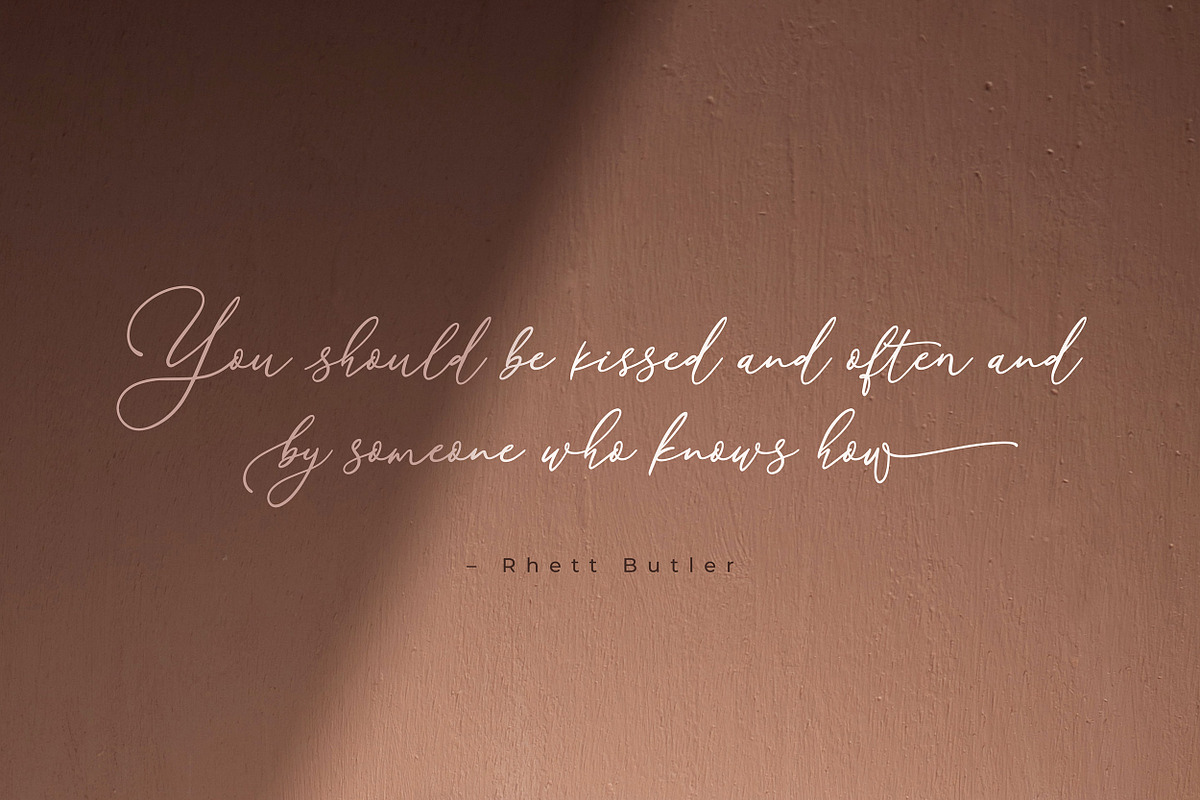 You should be kissed and often and
by someone who knows how
– Rhett Butler